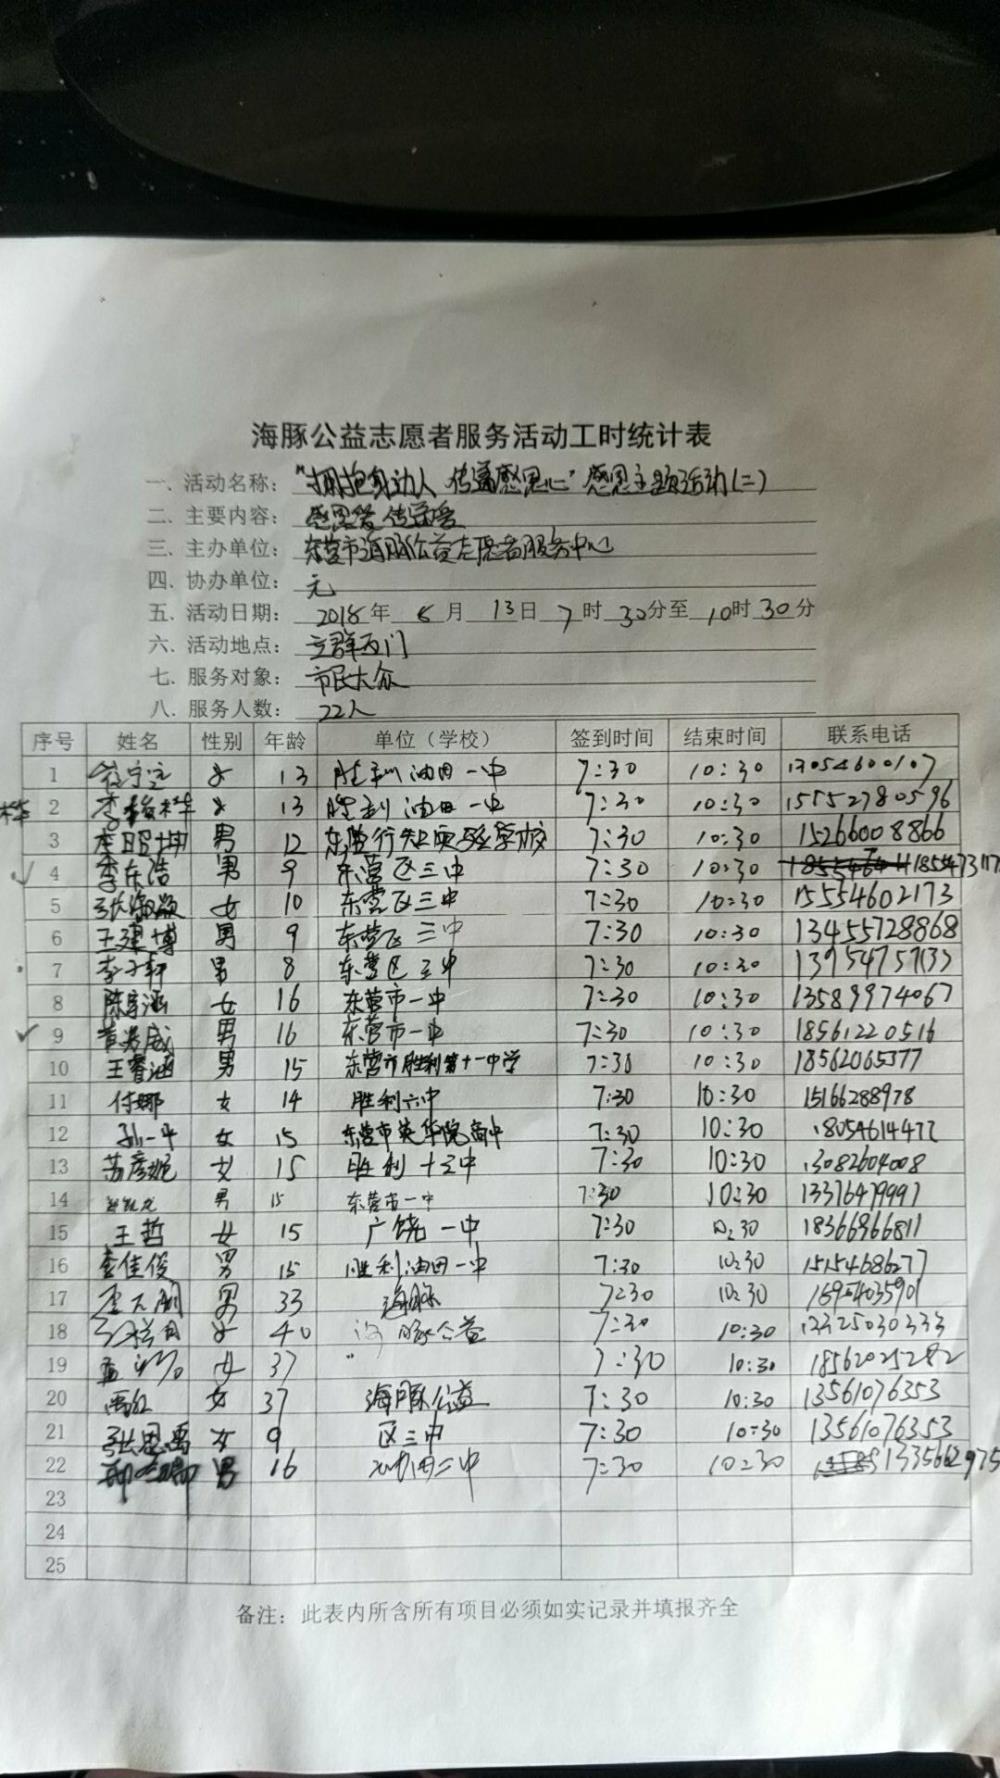 海豚公益志愿者服务活动工时统计表
一. 活动名称: "拥抱身边人 传递感恩心" 感恩主题活动(二)
二. 主要内容: 感恩 传递
三. 主办单位: 东营市海豚公益志愿者服务中心
四. 协办单位: 无
五. 活动日期: 2018年 6月 13日 7时 30分至 10时30分
六. 活动地点: 西门
七. 服务对象: 市民大众
八. 服务人数: 22人
序号 姓名 性别 年龄 单位（学校） 签到时间 结束时间 联系电话
1 女 13 胜利油田一中 7:30 10:30 13054600107
梅 2 李梅 女 13 胜利油田一中 7:30 10:30 15552780596
3 男 12 7:30 10:30 15266008866
4 李东浩 男 9 东营区三中 7:30 10:30
5 张 女 10 东营区三中 7:30 10:30 15554602173
6 王建博 男 9 东营区三中 7:30 10:30 13455728868
7 李子轩 男 8 东营区三中 7:30 10:30 13954757133
8 陈宇涵 女 16 东营市一中 7:30 10:30 13589974067
9 黄 威 男 16 东营市一中 7:30 10:30 18561220516
10 王睿涵 男 15 东营市胜利第十一中学 7:30 10:30 18562065377
11 付娜 女 14 胜利六中 7:30 10:30 15166288978
12 孙一平 女 15 东营市英华院高中 7:30 10:30 18054614477
13 苏彦妮 女 15 胜利十三中 7:30 10:30 13082604008
14 男 15 东营市一中 7:30 10:30 13376479997
15 王哲 女 15 广饶一中 7:30 10:30 18366966811
16 李佳俊 男 15 胜利油田一中 7:30 10:30 15154686277
17 男 33 海豚 7:30 10:30
18 女 40 海豚公益 7:30 10:30
19 女 37 " 7:30 10:30 18562025282
20 女 37 海豚公益 7:30 10:30 13561076353
21 张思禹 女 9 区三中 7:30 10:30 13561076353
22 男 16 7:30 10:30
23
24
25
备注: 此表内所含所有项目必须如实记录并填报齐全